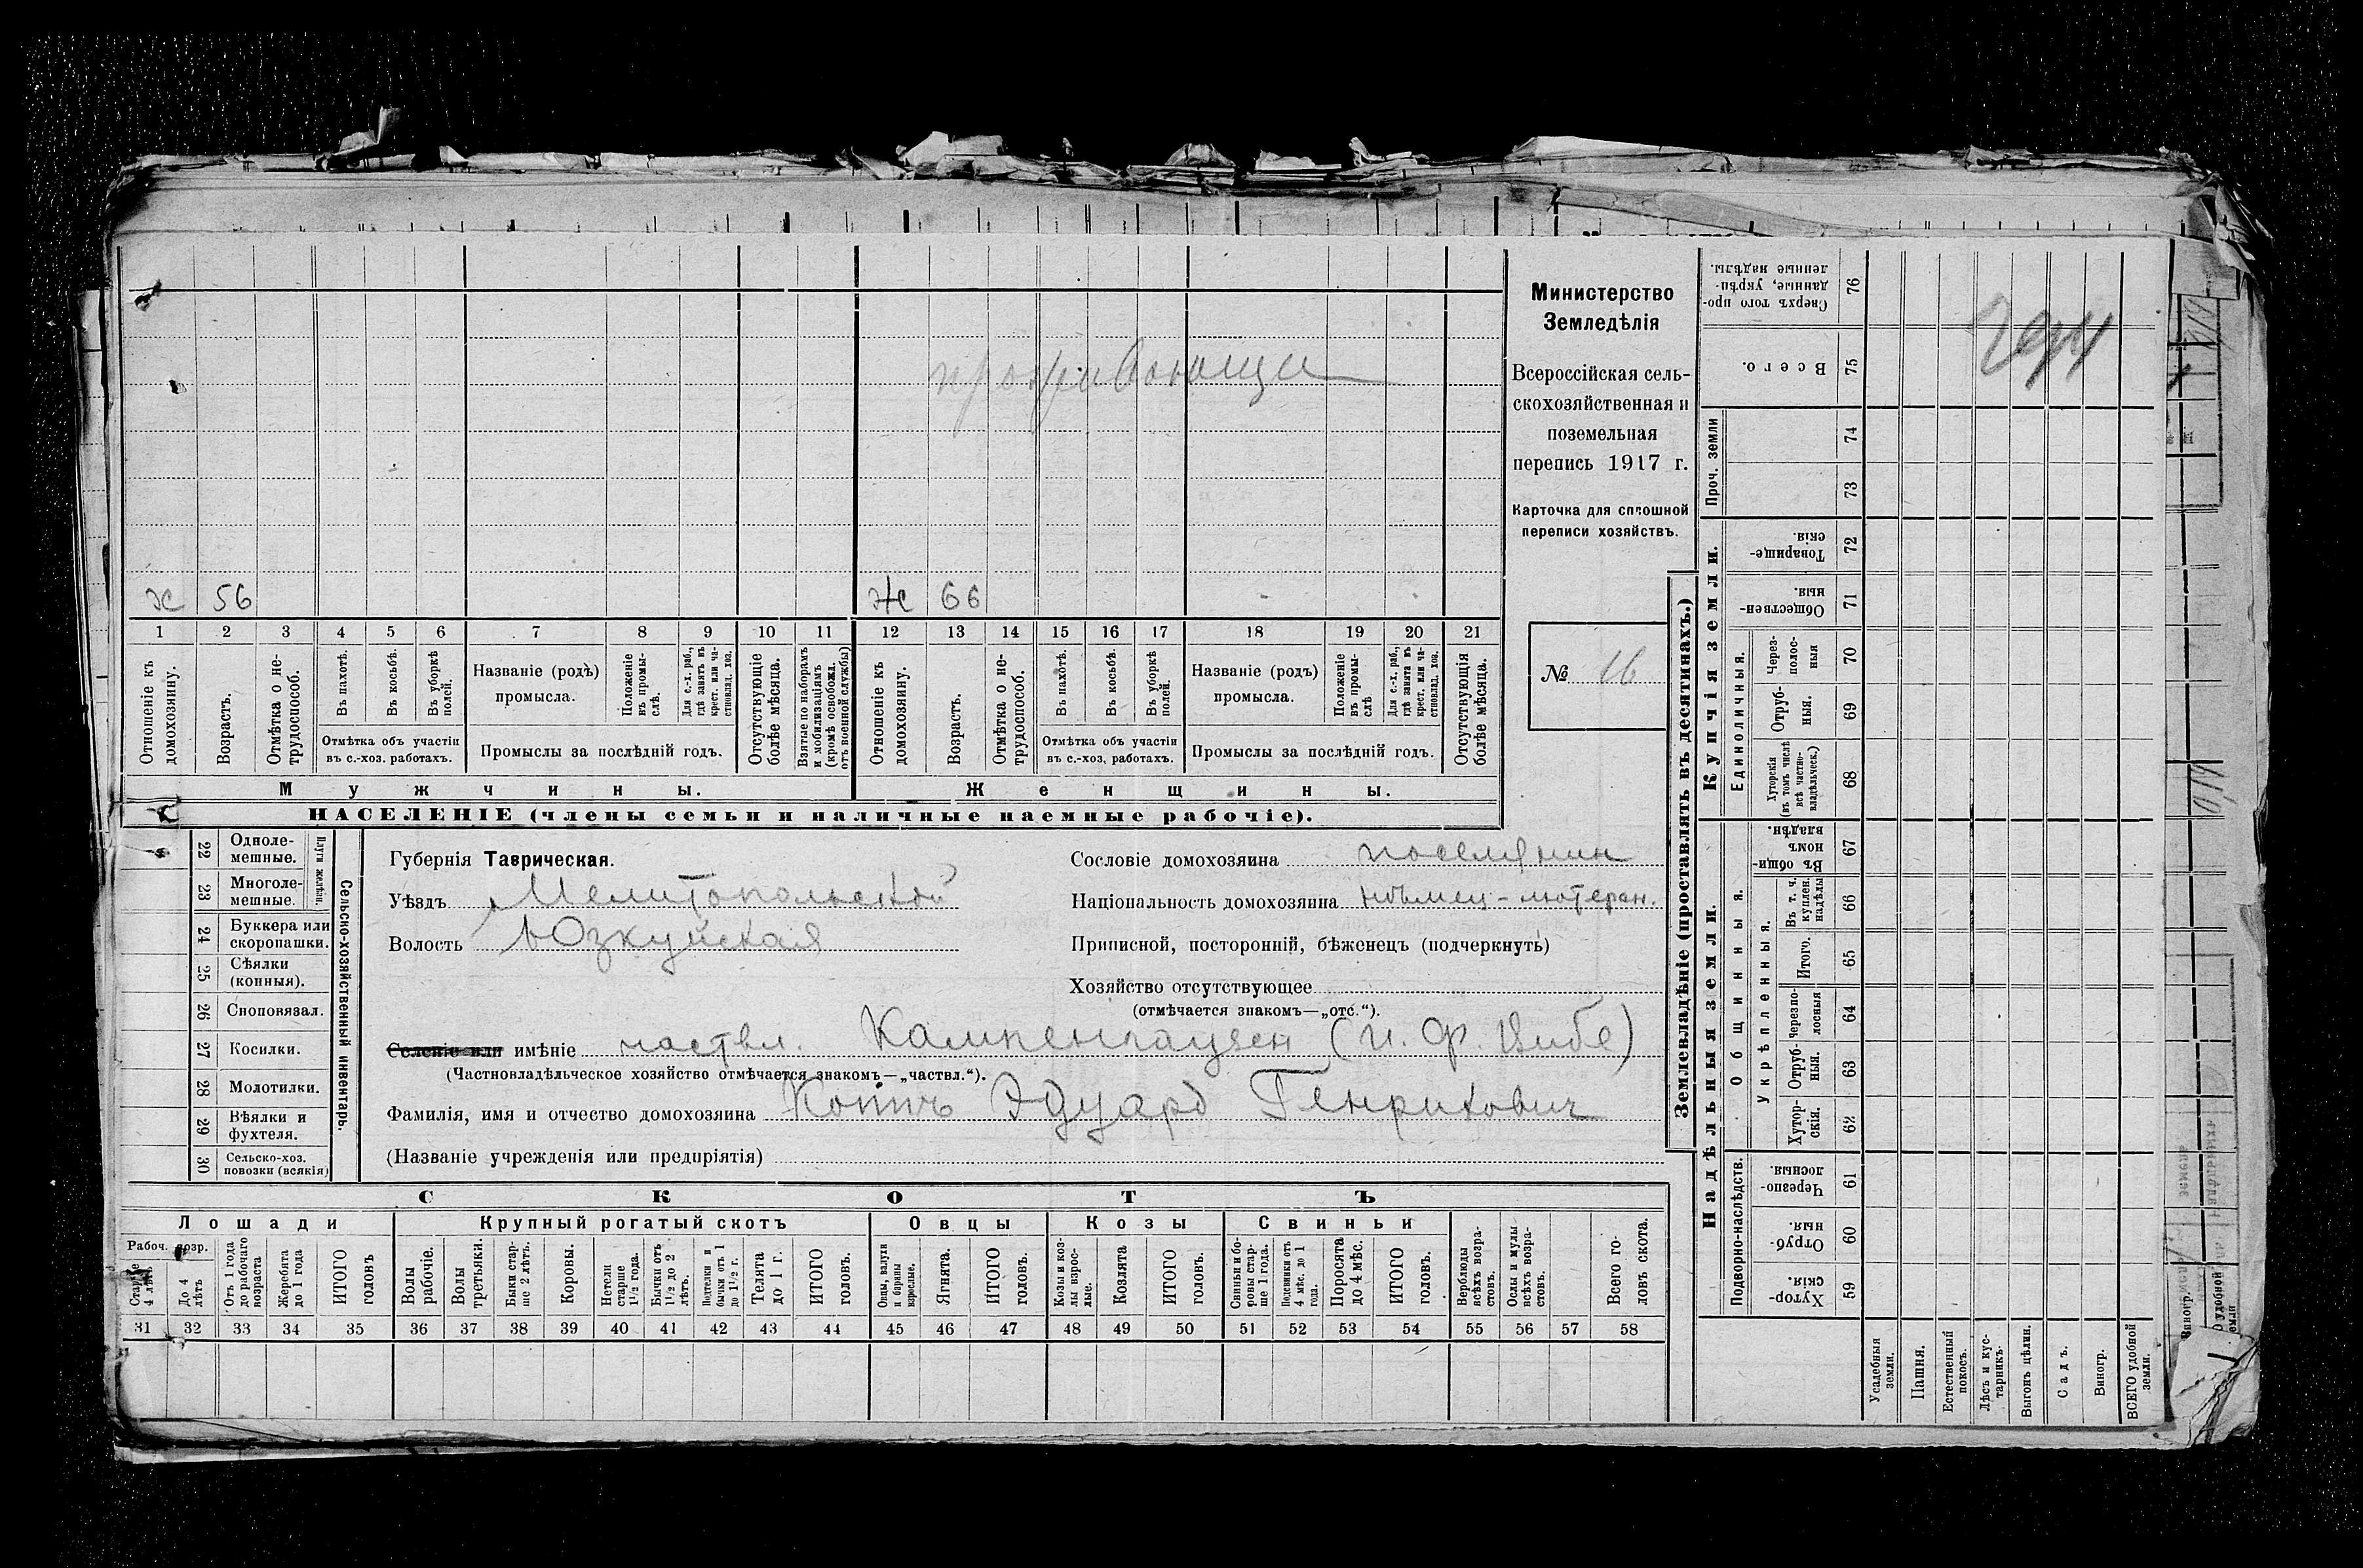 проживающи
Министерство
Земледѣлія
Всероссійская сель-
скохозяйственная и
поземельная
перепись 1917 г.
Карточка для сплошной
переписи хозяйствъ.
№ 16
х 56
Ж 66
1 2 3 4 5 6 7 8 9 10 11 12 13 14 15 16 17 18 19 20 21
Отношеніе къ домохозяину.
Возрастъ.
Отмѣтка о не-трудоспособ.
Въ пахотѣ.
Въ косьбѣ.
Въ уборкѣ полей.
Отмѣтка объ участіи
въ с.-хоз. работахъ.
Названіе (родъ)
промысла.
Положеніе въ промы-слѣ.
Для с.-х. раб., гдѣ занятъ въ крест. или ча-стновлад. хоз.
Промыслы за послѣдній годъ.
Отсутствующіе болѣе мѣсяца.
Взятые по наборамъ и мобилизаціямъ (кромѣ освобожд. отъ военной службы)
Отношеніе къ домохозяину.
Возрастъ.
Отмѣтка о не-трудоспособ.
Въ пахотѣ.
Въ косьбѣ.
Въ уборкѣ полей.
Отмѣтка объ участіи
въ с.-хоз. работахъ.
Названіе (родъ)
промысла.
Положеніе въ промы-слѣ
Для с.-х. раб., гдѣ занята въ крест. или ча-стновлад. хоз.
Промыслы за послѣдній годъ.
Отсутствующія болѣе мѣсяца.
Мужчины.
Женщины.
НАСЕЛЕНІЕ (члены семьи и наличные наемные рабочіе).
22 Одноле-мешные.
23 Многоле-мешные.
Плуги желѣзн.
24 Буккера или скоропашки.
25 Сѣялки (конныя).
26 Сноповязал.
27 Косилки.
28 Молотилки.
29 Вѣялки и фухтеля.
30 Сельско-хоз. повозки (всякія)
Сельско-хозяйственный инвентарь.
Губернія Таврическая.
Уѣздъ Мелитопольской
Волость Юзкуйская
Сословіе домохозяина поселянин
Національность домохозяина нѣмец-лютеран.
Приписной, посторонній, бѣженецъ (подчеркнуть)
Хозяйство отсутствующее
(отмѣчается знакомъ—„отс.“).
Селеніе или имѣніе частвл. Кампенгаузен (И. Ф. Вибе)
(Частновладѣльческое хозяйство отмѣчается знакомъ—„частвл.“).
Фамилія, имя и отчество домохозяина Эдуард Генрихович
(Названіе учрежденія или предпріятія)
СКОТЪ
Лошади
Крупный рогатый скотъ
Овцы
Козы
Свиньи
Рабоч. возр.
Старше 4 лѣтъ
До 4 лѣтъ
Отъ 1 года до рабочаго возраста
Жеребята до 1 года
ИТОГО головъ
Волы рабочіе.
Волы третьяки.
Быки стар-ше 2 лѣтъ.
Коровы.
Нетели старше 1½ года.
Бычки отъ 1½ до 2 лѣтъ.
Подтелки и бычки отъ 1 до 1½ г.
Телята до 1 г.
ИТОГО головъ.
Овцы, валухи и бараны взрослые.
Ягнята.
ИТОГО головъ.
Козы и коз-лы взрос-лые.
Козлята
ИТОГО головъ.
Свиньи и бо-ровы стар-ше 1 года.
Подсвинки отъ 4 мѣс. до 1 года.
Поросята до 4 мѣс.
ИТОГО головъ.
Верблюды всѣхъ возра-стовъ.
Ослы и мулы всѣхъ возра-стовъ.
Всего го-ловъ скота.
31 32 33 34 35 36 37 38 39 40 41 42 43 44 45 46 47 48 49 50 51 52 53 54 55 56 57 58
Землевладѣніе (проставлять въ десятинахъ.)
Купчія земли.
Надѣльныя земли.
Сверхъ того про-данные, укрѣп-ленные надѣлы. 76
Всего. 75
Проч. земли
74
73
Товарище-скія. 72
Обществен-ныя. 71
Единоличныя.
Через-полос-ныя 70
Отруб-ныя. 69
Хуторскія (въ томъ числѣ всѣ частно-владѣльческ.) 68
Общинныя.
Въ общин-номъ владѣн. 67
Укрѣпленныя.
Въ т. ч. куплен. надѣлы 66
Итого. 65
Черезпо-лосныя 64
Отруб-ныя. 63
Хутор-скія. 62
Подворно-наслѣдств.
Черезпо-лосныя. 61
Отруб-ныя. 60
Хутор-скія. 59
Усадебныя земли.
Пашня.
Естественный покосъ.
Лѣсъ и кус-тарникъ.
Выгонъ цѣлин.
Садъ.
Виногр.
ВСЕГО удобной земли.